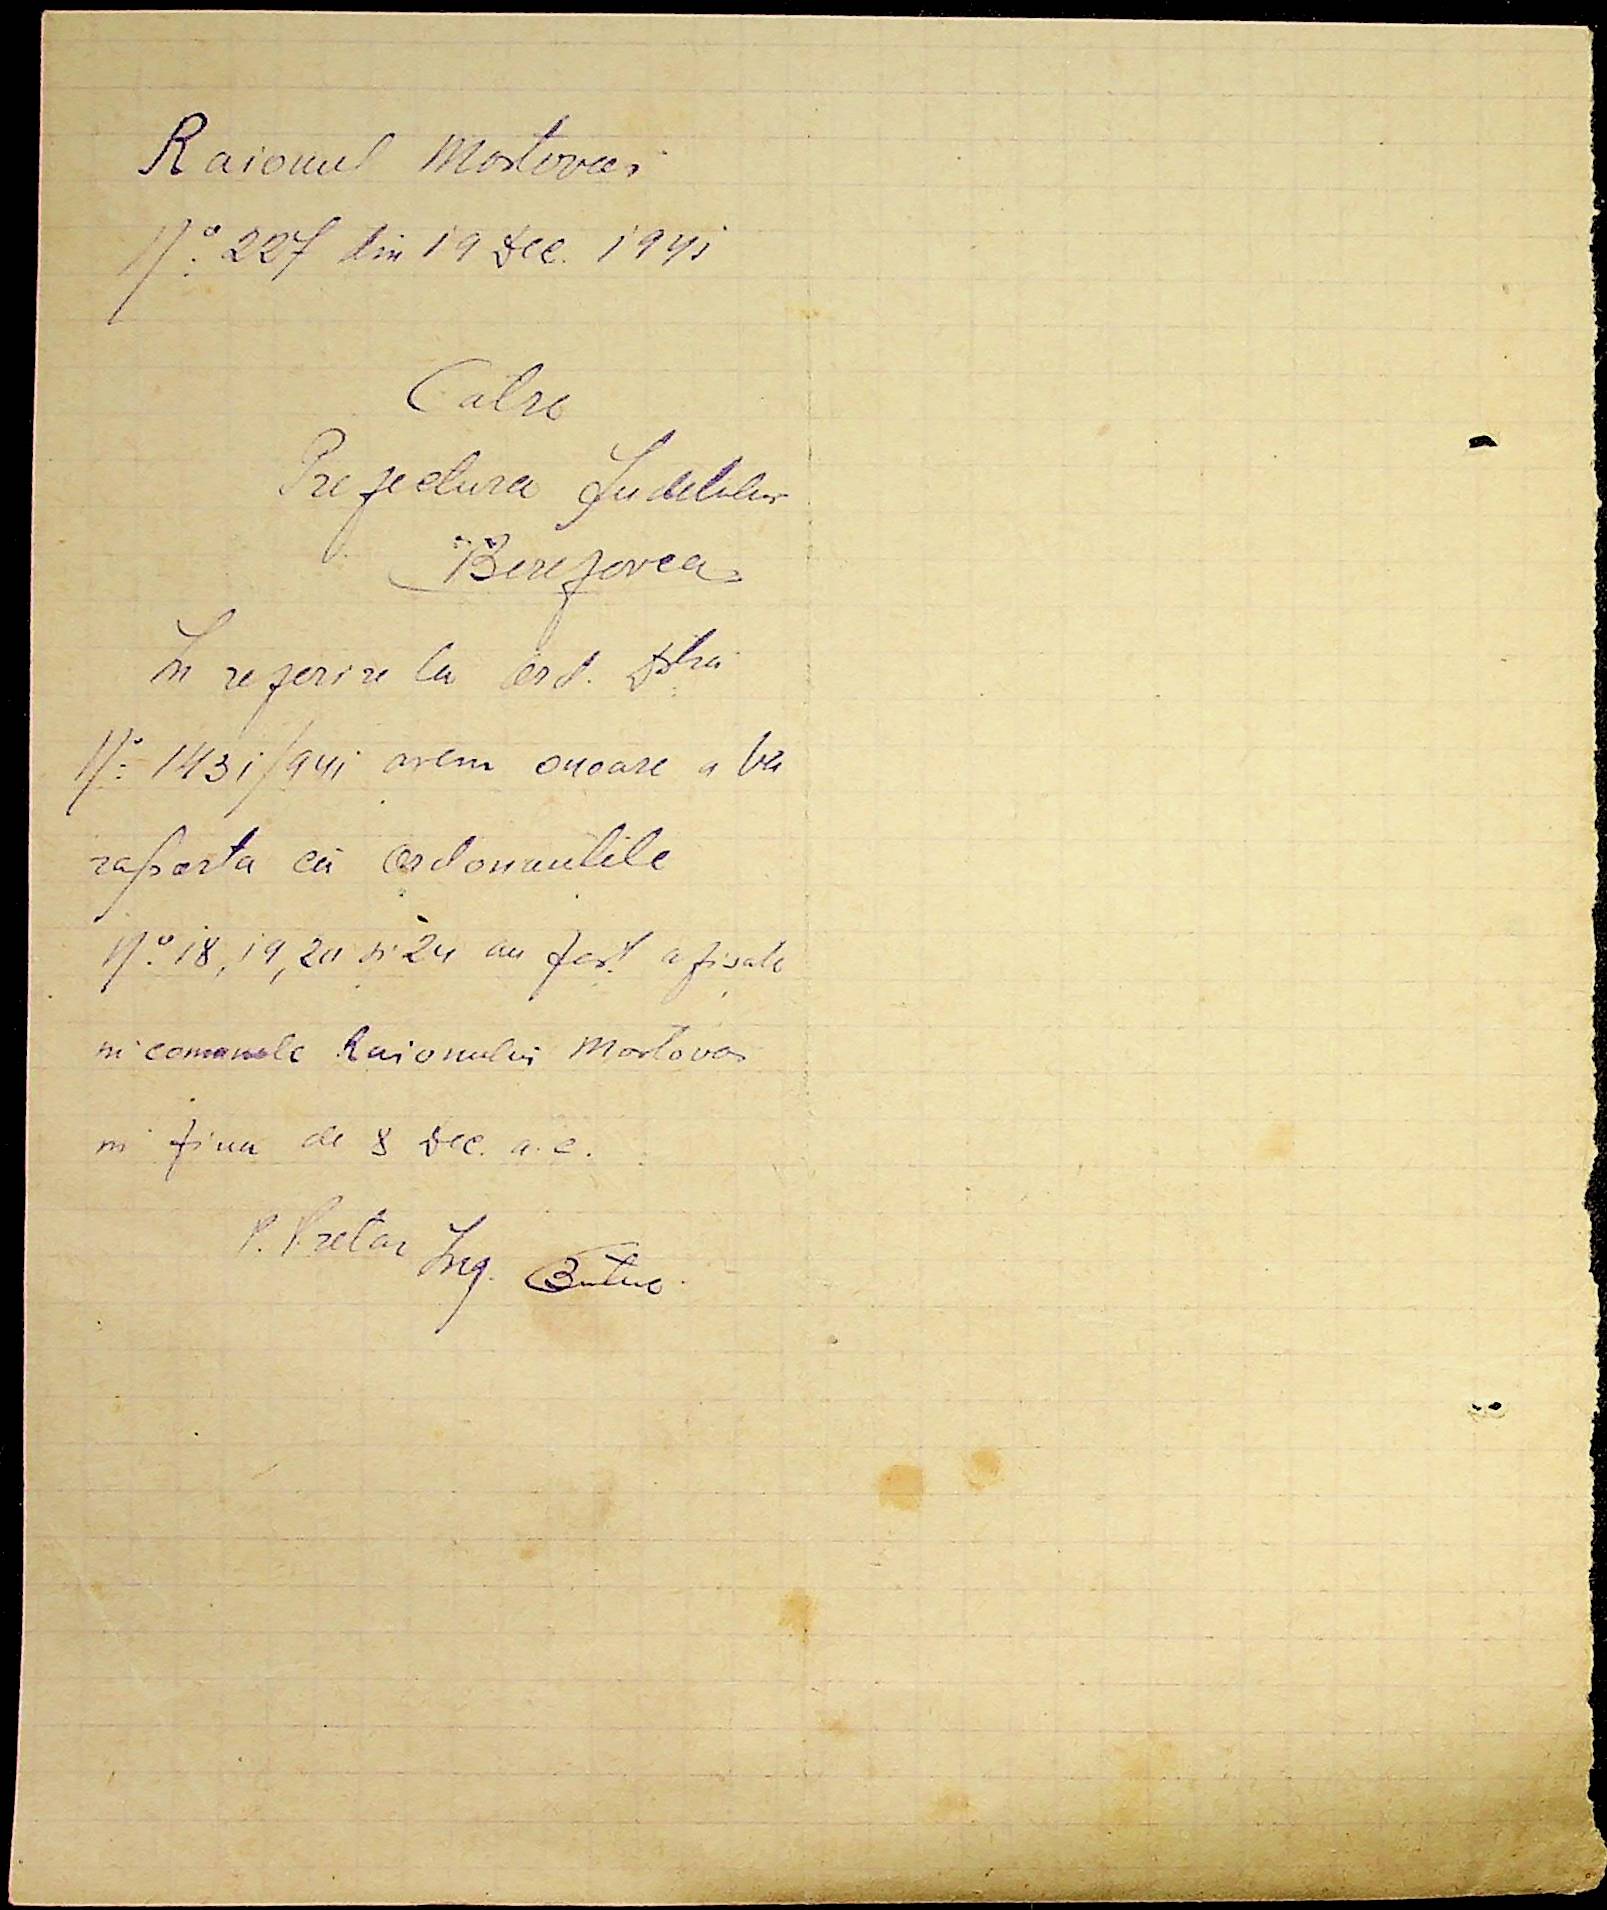 Raionul Mostovoi
No. 227 din 19 Dec. 1941
Catre
Prefectura Judetului
Berezovca
In referire la ord. Dvs.
No. 1431/941 avem onoare a va
raporta că Ordonantele
No. 18, 19, 20 si 24 au fost afisate
in comunele Raionului Mostovoi
in ziua de 8 Dec. a.c.
P. Pretor Ing.